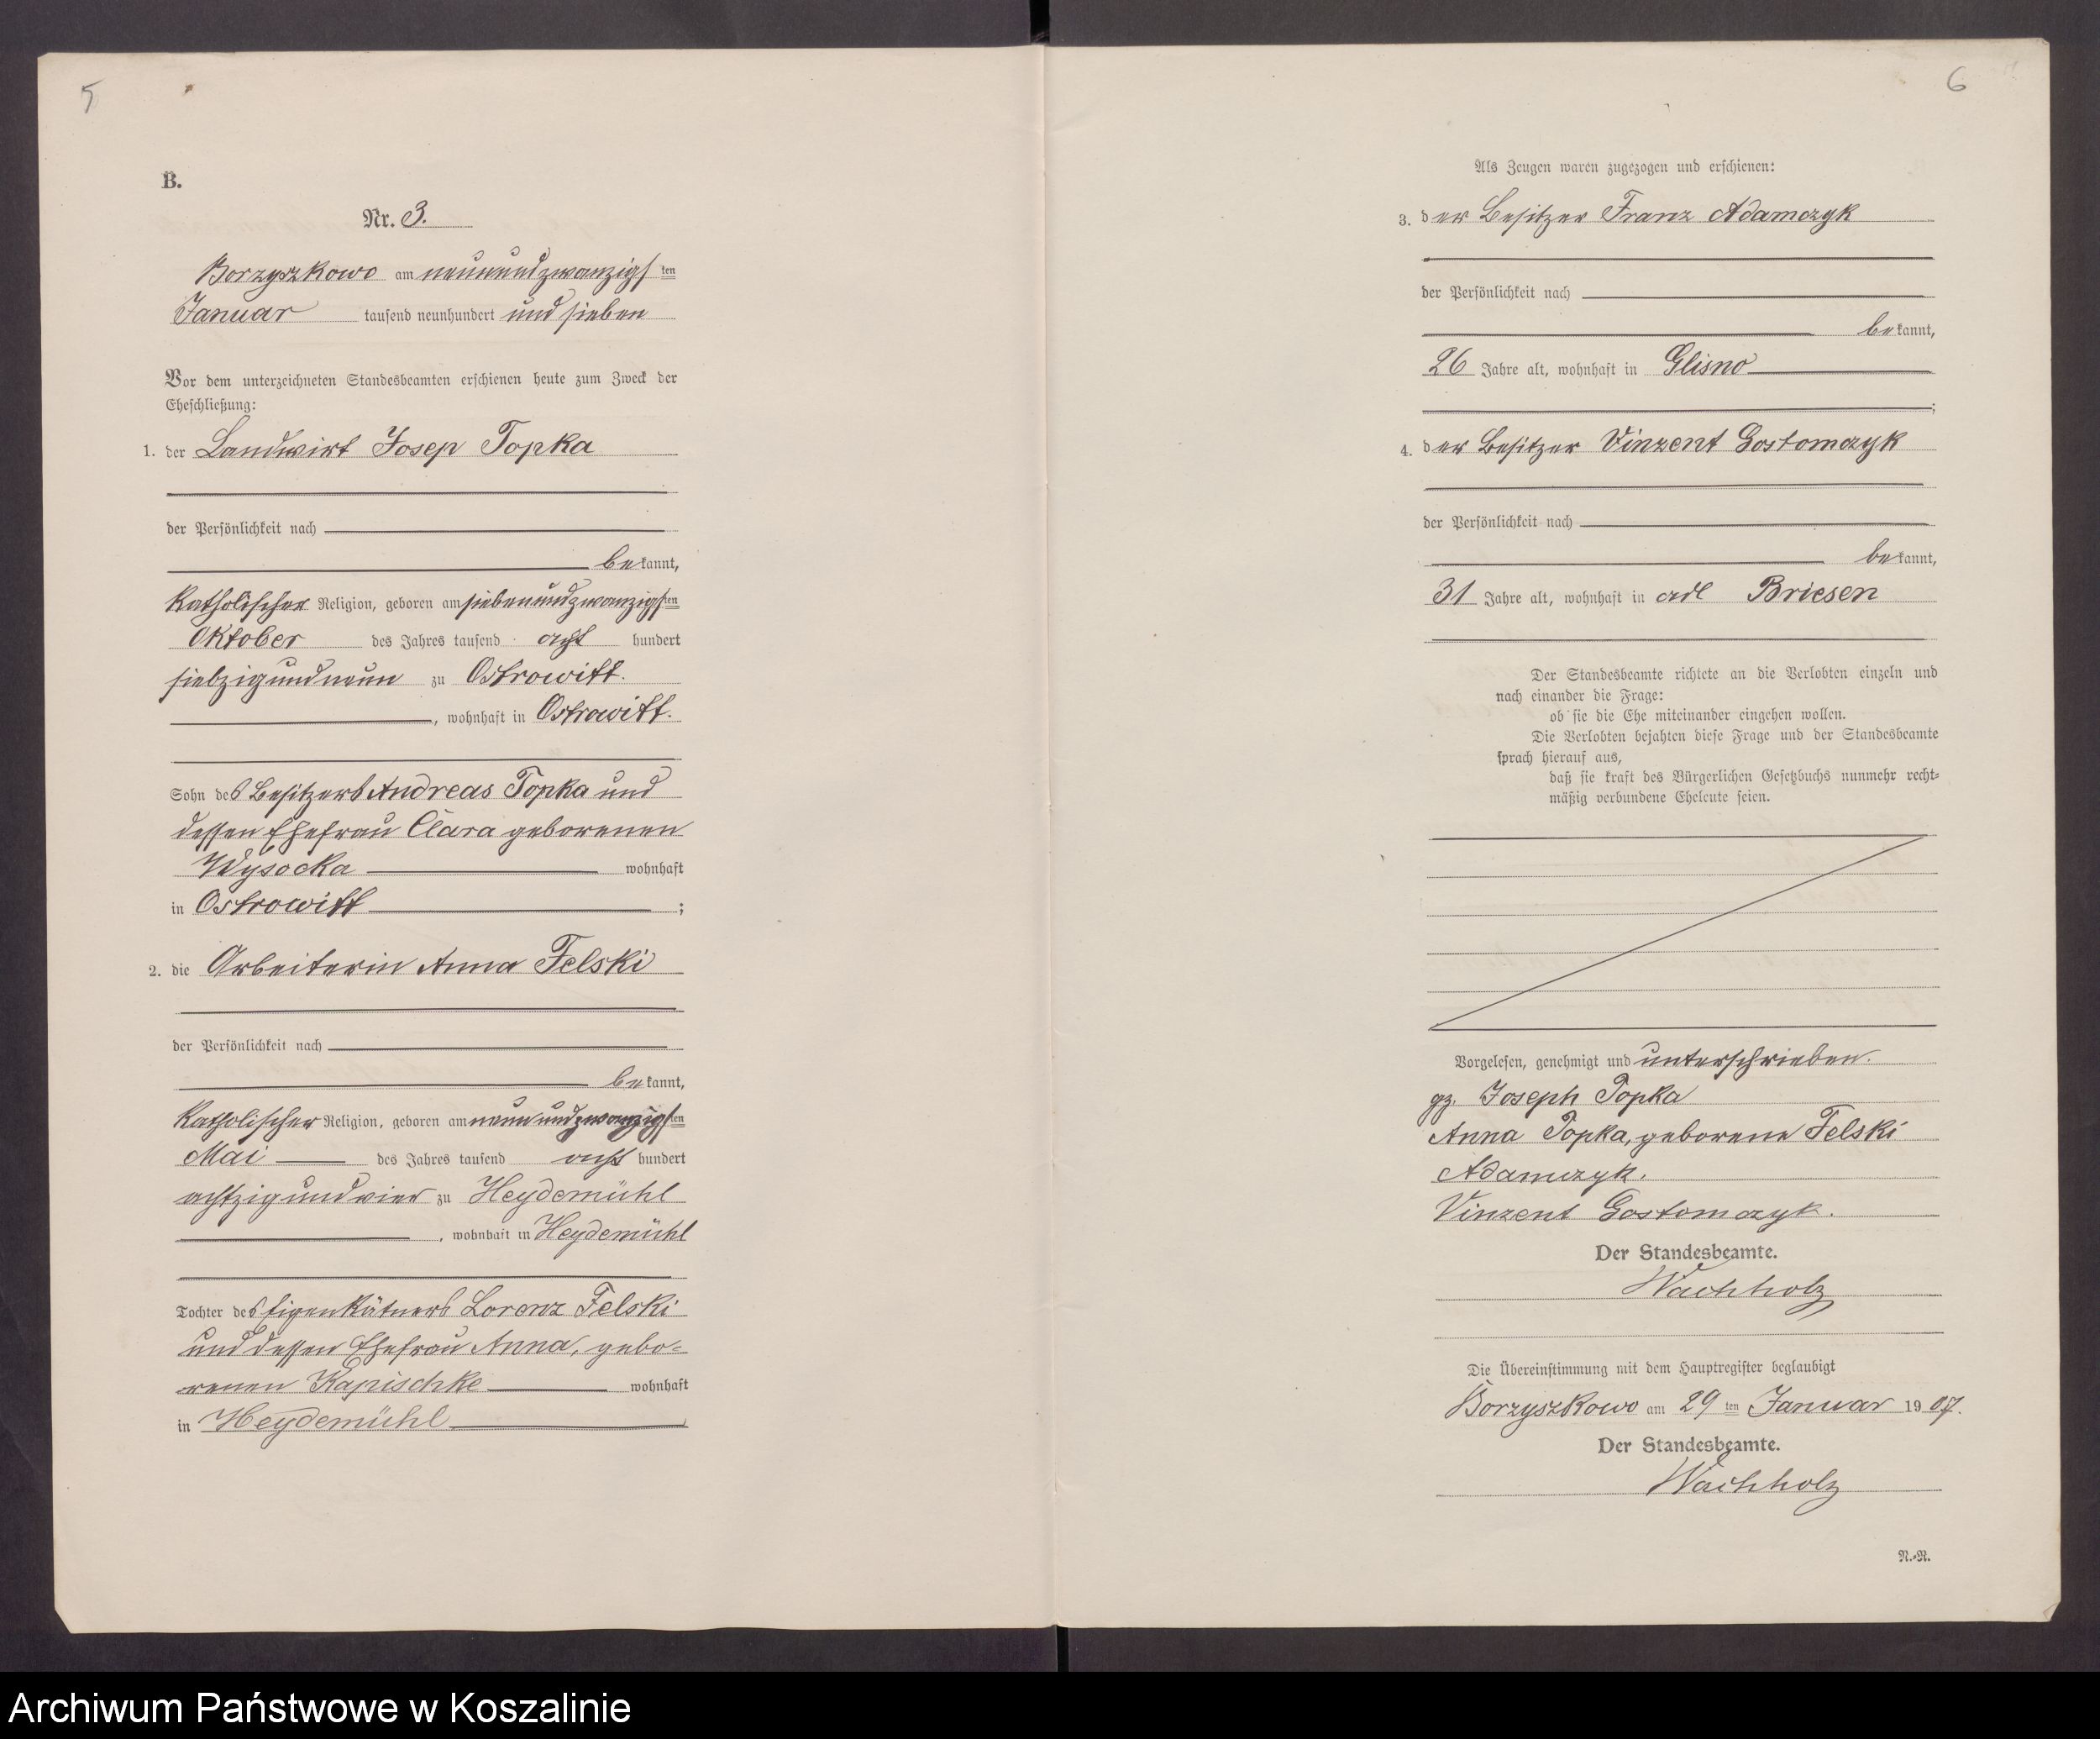 5
B.
Nr. 3.
Borzyszkowo am neunundzwanzigsten
Januar tausend neunhundert und sieben
Vor dem unterzeichneten Standesbeamten erschienen heute zum Zweck der
Eheschließung:
1. der Landwirt Josep Topka
der Persönlichkeit nach
bekannt,
Katholischer Religion, geboren am siebenundzwanzigsten
Oktober des Jahres tausend acht hundert
siebzigundneun zu Ostrowitt.
, wohnhaft in Ostrowitt.
Sohn des Besitzers Andreas Topka und
dessen Ehefrau Clara geborenen
Wysocka wohnhaft
in Ostrowitt ;
2. die Arbeiterin Anna Felski
der Persönlichkeit nach
bekannt,
Katholischer Religion, geboren am neunundzwanzigsten
Mai des Jahres tausend acht hundert
achtzigundvier zu Heydemühl
, wohnhaft in Heydemühl
Tochter des Eigenkätners Lorenz Felski
und dessen Ehefrau Anna, gebo=
renen Kapischke wohnhaft
in Heydemühl
6
Als Zeugen waren zugezogen und erschienen:
3. der Besitzer Franz Adamczyk
der Persönlichkeit nach
bekannt,
26 Jahre alt, wohnhaft in Glisno
;
4. der Besitzer Vinzent Gostomczyk
der Persönlichkeit nach
bekannt,
31 Jahre alt, wohnhaft in adl Briesen
Der Standesbeamte richtete an die Verlobten einzeln und
nach einander die Frage:
ob sie die Ehe miteinander eingehen wollen.
Die Verlobten bejahten diese Frage und der Standesbeamte
sprach hierauf aus,
daß sie kraft des Bürgerlichen Gesetzbuchs nunmehr recht=
mäßig verbundene Eheleute seien.
Vorgelesen, genehmigt und unterschrieben.
gz. Joseph Topka
Anna Topka, geborene Felski
Adamczyk.
Vinzent Gostomczyk.
Der Standesbeamte.
Wachholz
Die Übereinstimmung mit dem Hauptregister beglaubigt
Borzyszkowo am 29 ten Januar 1907.
Der Standesbeamte.
Wachholz
N.=N.
Archiwum Państwowe w Koszalinie